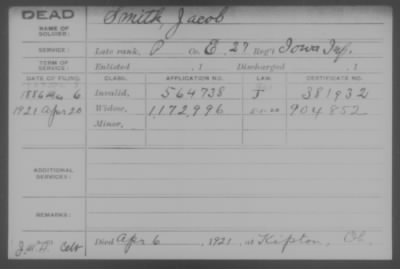 DEAD
NAME OF SOLDIER: Smith, Jacob
SERVICE: Late rank, P Co. E, 27 Reg't Iowa Inf.
TERM OF SERVICE: Enlisted , 1 Discharged , 1
DATE OF FILING. CLASS. APPLICATION NO. LAW. CERTIFICATE NO.
1886 6 Invalid, 564738 J 381932
1921 Apr 20 Widow, 1,172,996 904852
Minor,
ADDITIONAL SERVICES:
REMARKS:
Died Apr 6, 1921, at Kipton, Oh.